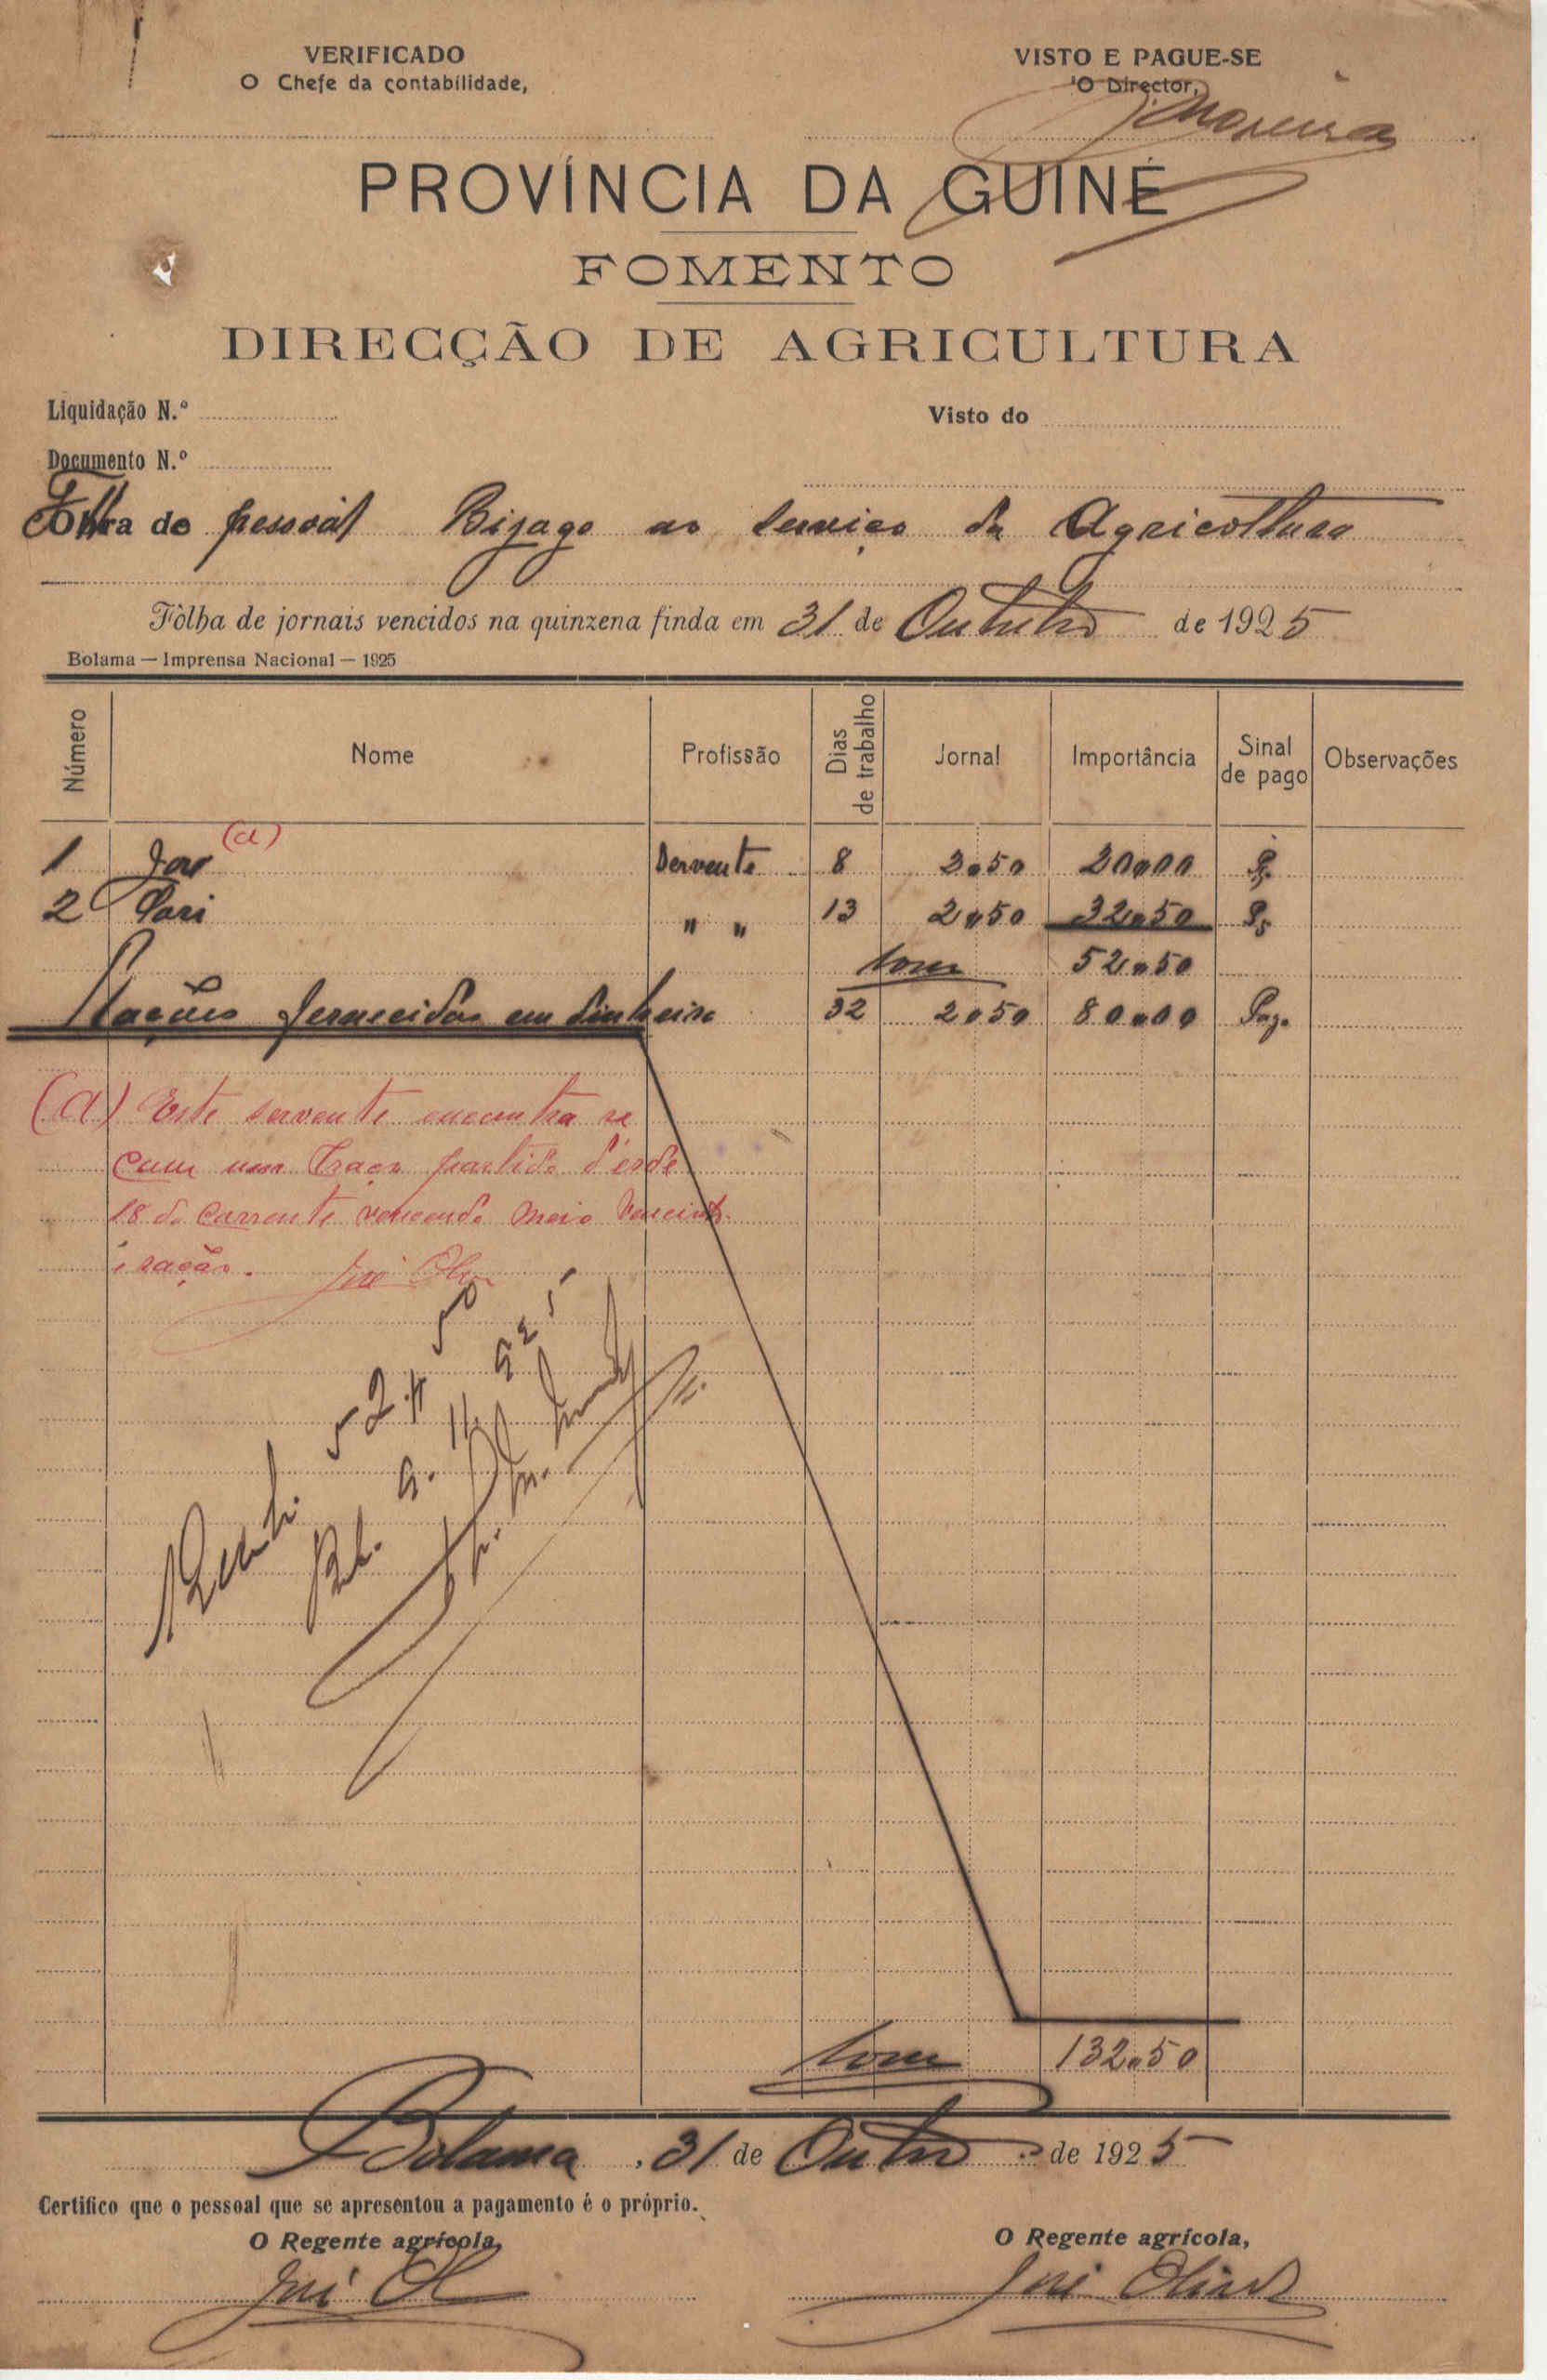 VERIFICADO
O Chefe da contabilidade,
VISTO E PAGUE-SE
O Director,
J. Moreira
PROVÍNCIA DA GUINÉ
FOMENTO
DIRECÇÃO DE AGRICULTURA
Liquidação N.º
Visto do
Documento N.º
Folha de pessoal Bijago ao serviço da Agricoltura
Fôlha de jornais vencidos na quinzena finda em 31 de Outubro de 1925
Bolama — Imprensa Nacional — 1925
Número Nome Profissão Dias de trabalho Jornal Importância Sinal de pago Observações
1 (a) Servente 8 2$50 20$00 P.
2 " " 13 2$50 32$50
Soma 52$50
Rações fornecidas em dinheiro 32 2$50 80$00 Pag.
(a) Este servente encontra se
com um braço partido désde
18 do corrente vencendo meio vencimto.
e ração. José
Recebi 52$50
Bl. 9. 11. 925
Soma 132$50
Bolama, 31 de Outubro de 1925
Certifico que o pessoal que se apresentou a pagamento é o próprio.
O Regente agrícola,
O Regente agrícola,
José
José